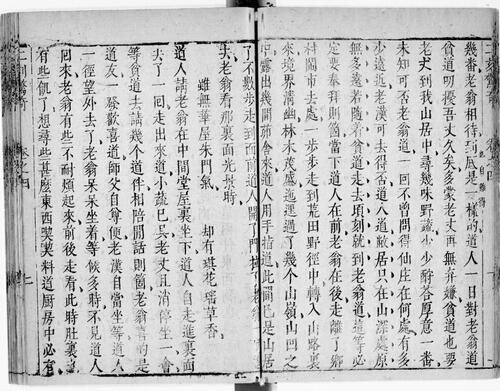 幾番老翁相待到底是一的道人一日對老翁道
也自難得
貧道叨擾吾丈久矣多蒙老丈再無弃嫌貧道也要
老丈到我山居中尋幾味野蔬少少酧答厚意一番
未知可否老翁道一向不曾問得仙庄在何處有多
少遠近老漢可去得否道人道敝居只在山深處原
無多遠若隨着貧道走去頃刻就到老翁道這等必
定要奉拜則箇當下道人在前老翁在後走離了鄉
村鬧市去處一步步走到荒田野徑中轉入山路裏
來境界清幽林木茂盛迤逦過了幾個山嶺山凹之
中露出幾間茅舍來道人用手指道此間已是山居
了不數步走到面前道人開了門拽了老翁
去老翁看那裏面光景時
雖無華屋朱門氣　却有琪花瑶草香
道人請老翁在中間堂屋裏坐下道人自走進裏面
去了一回走出來道小蔬已具老丈且消停坐一會
等貧道去請幾個道伴相陪閒話則箇老翁喜的是
道友一發歡喜道師父自尊便老漢自當坐等道人
一徑望外去了老翁呆呆坐着等候多時不見道人
回來老翁有些不耐煩起來前後走看此時肚裏
有些飢了想尋些甚麽東西吃吃料道厨房中必有
二刻驚奇